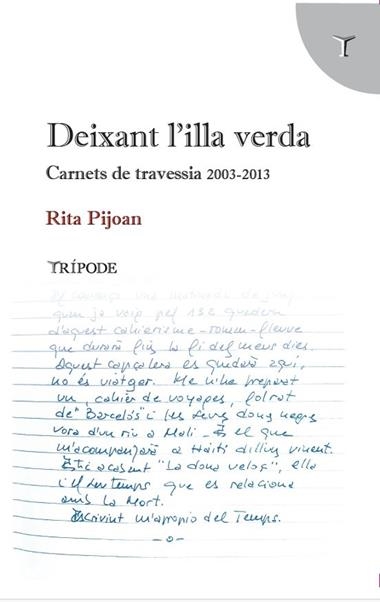 Deixant l'illa verda
Carnets de travessia 2003-2013
Rita Pijoan
TRÍPODE
una
quan ja vaig pel 132 quadern
d'aquest cahierisme-roman-fleuve
que durarà fins la fi del meus dies.
Aquest capçalera es quedarà aquí,
no és viatger. Me n'he preparat
un, cahier de voyages, folrat
de "Barceló" i les seves dones negres
vora d'un riu a Mali. És el que
m'acompanyarà a Haití dilluns vinent.
Estic acabant "La dona veloç", ella
i el temps que es relaciona
amb la Mort.
Escrivint m'apropio del Temps.
-o-